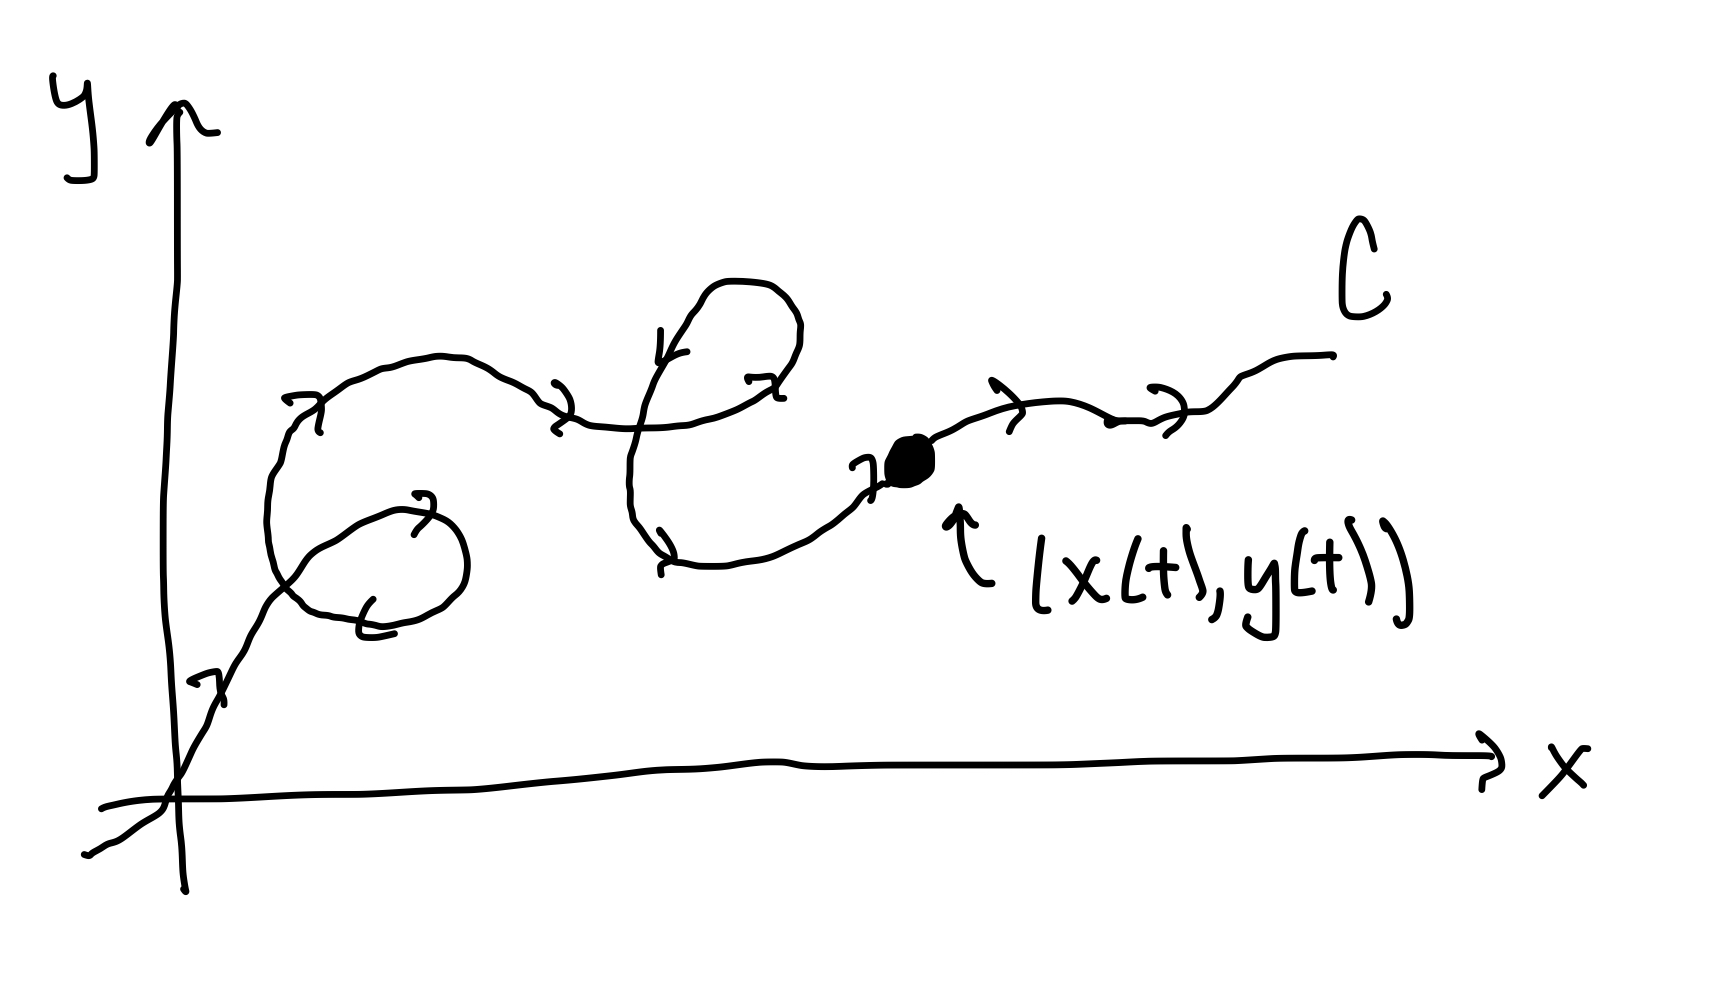 y
C
(x(t), y(t))
x